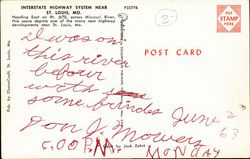 INTERSTATE HIGHWAY SYSTEM NEAR
ST. LOUIS, MO.
P35776
Heading East on Rt. #270, across Missouri River,
this scene depicts one of the many new highway
developments near St. Louis, Mo.
PUT
STAMP
HERE
POST CARD
I was on
this river
befour
with
some friends June 22
63
Jon J. Mowers
5:00 P.M. MONDAY
by Jack Zehrt